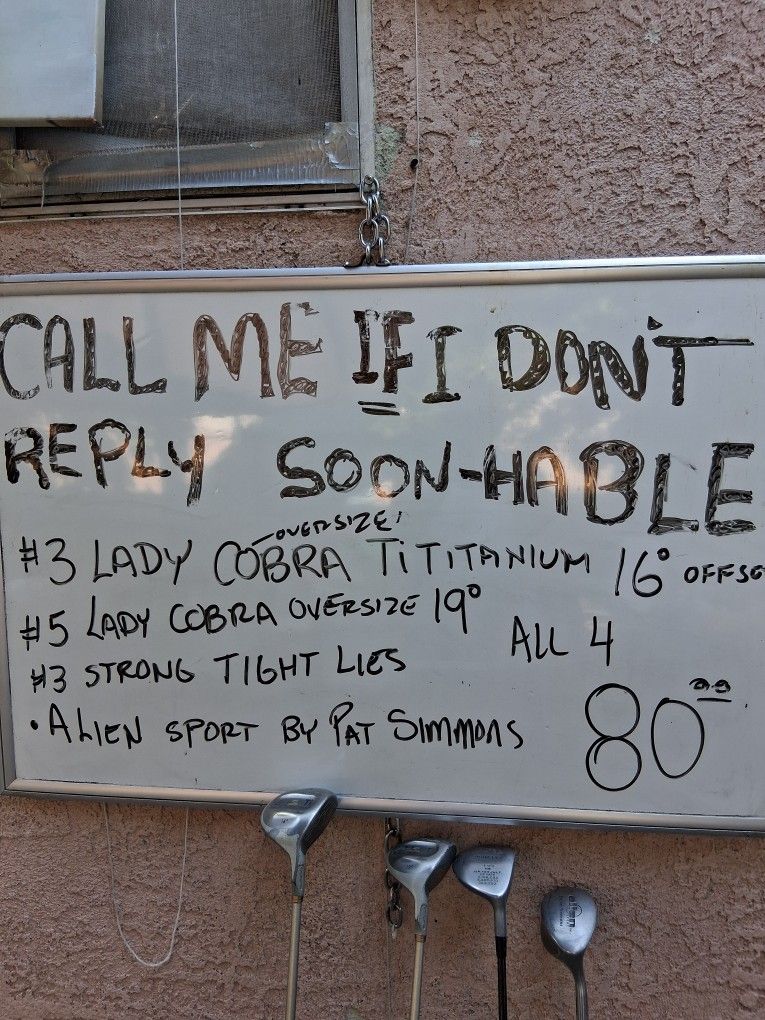 CALL ME IF I DON'T
REPLY SOON-HABLE
OVERSIZE
#3 LADY COBRA Ti TITANIUM 16° OFFSE
#5 LADY COBRA OVERSIZE 19°
ALL 4
#3 STRONG TIGHT LIES
• ALIEN SPORT BY PAT SIMMONS
80